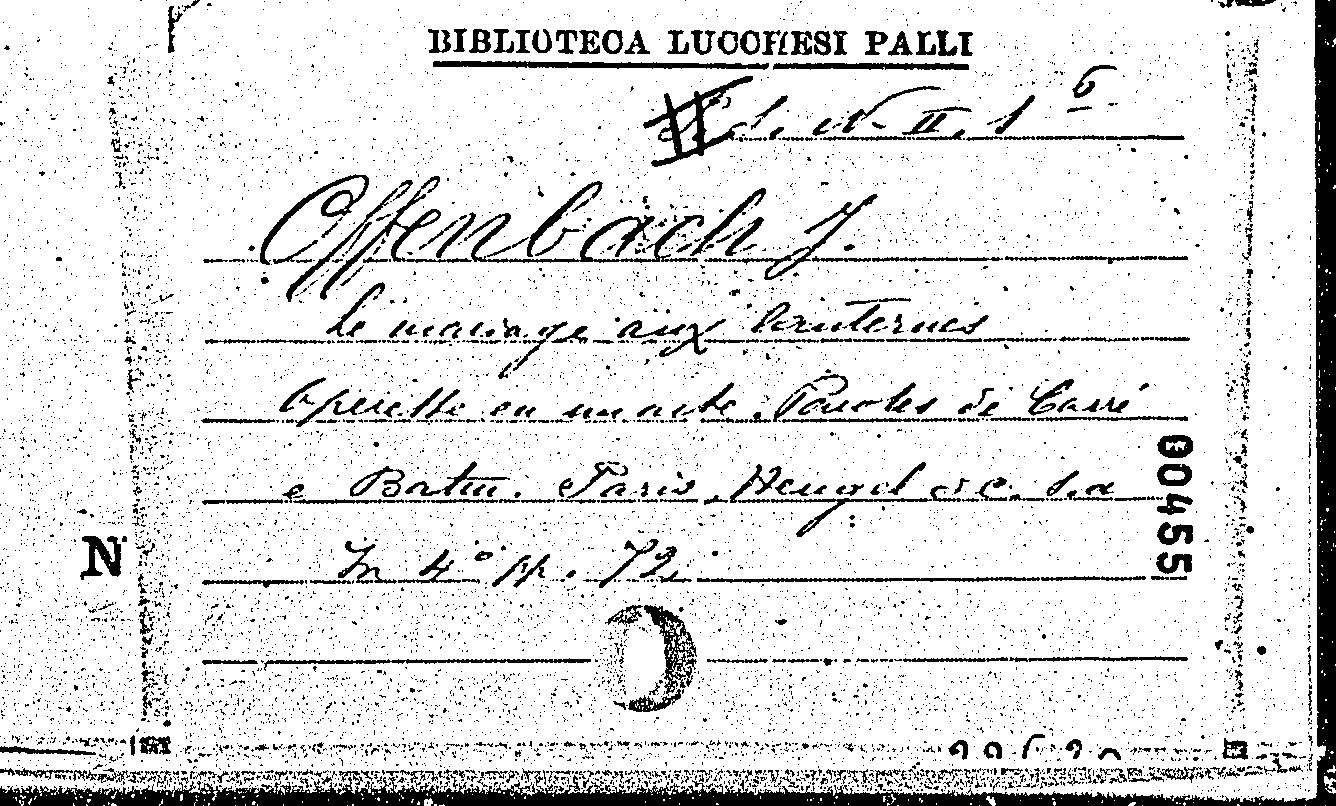 BIBLIOTECA LUCCHESI PALLI
N. II. 1 6
Offenbach J.
Le mariage aux lanternes
Operette en un acte. Paroles de Carré
e Battu. Paris, Heugel & C. s.a
In 4° pp. 72.
00455
N